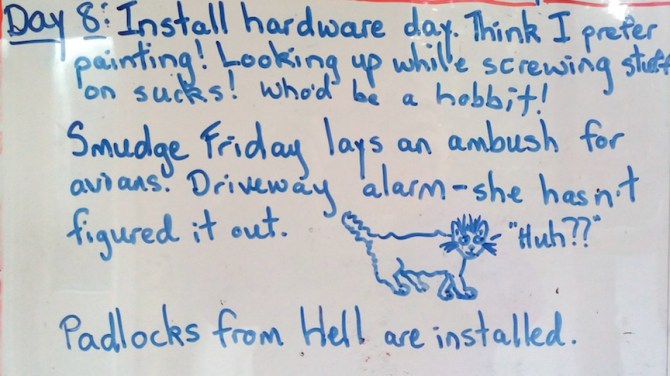 Day 8: Install hardware day. Think I prefer
painting! Looking up while screwing stuff
on sucks! Who'd be a hobbit!
Smudge Friday lays an ambush for
avians. Driveway alarm - she hasn't
figured it out.
"Huh??"
Padlocks from Hell are installed.